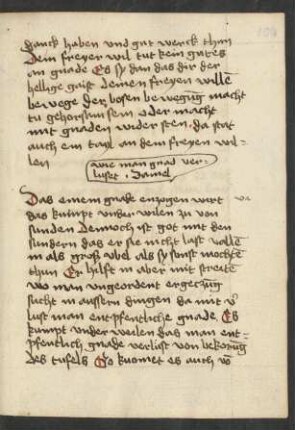 danck haben und gut werck thun
Dein freyer wil tut kein gutes
an gnade Es sy dan das dir der
heilige gaist deinen freyen willē
bewege der bosen bewegūg macht
tu gehorsam sein oder macht
mit gnaden wider sten. da stat
auch ein tayl an dem freyen wil-
len
wie man gnad ver-
luset .
Das einem gnade enzogen wirt
das kumpt under wilen zu von
sunden Dennoch ist got mit den
sundern das er sie nicht last vallen
in als groß ubel als sy sunst mochten
thun Er hilft in aber mit streite
wo man ungeordent ergeczūg
sucht in aussern dingen da mit v
lust man entpfentliche gnade. Es
kumpt under weilen das man ent-
pfentlich gnade verlust von bekorūg
des tufels So kuomet es auch vō